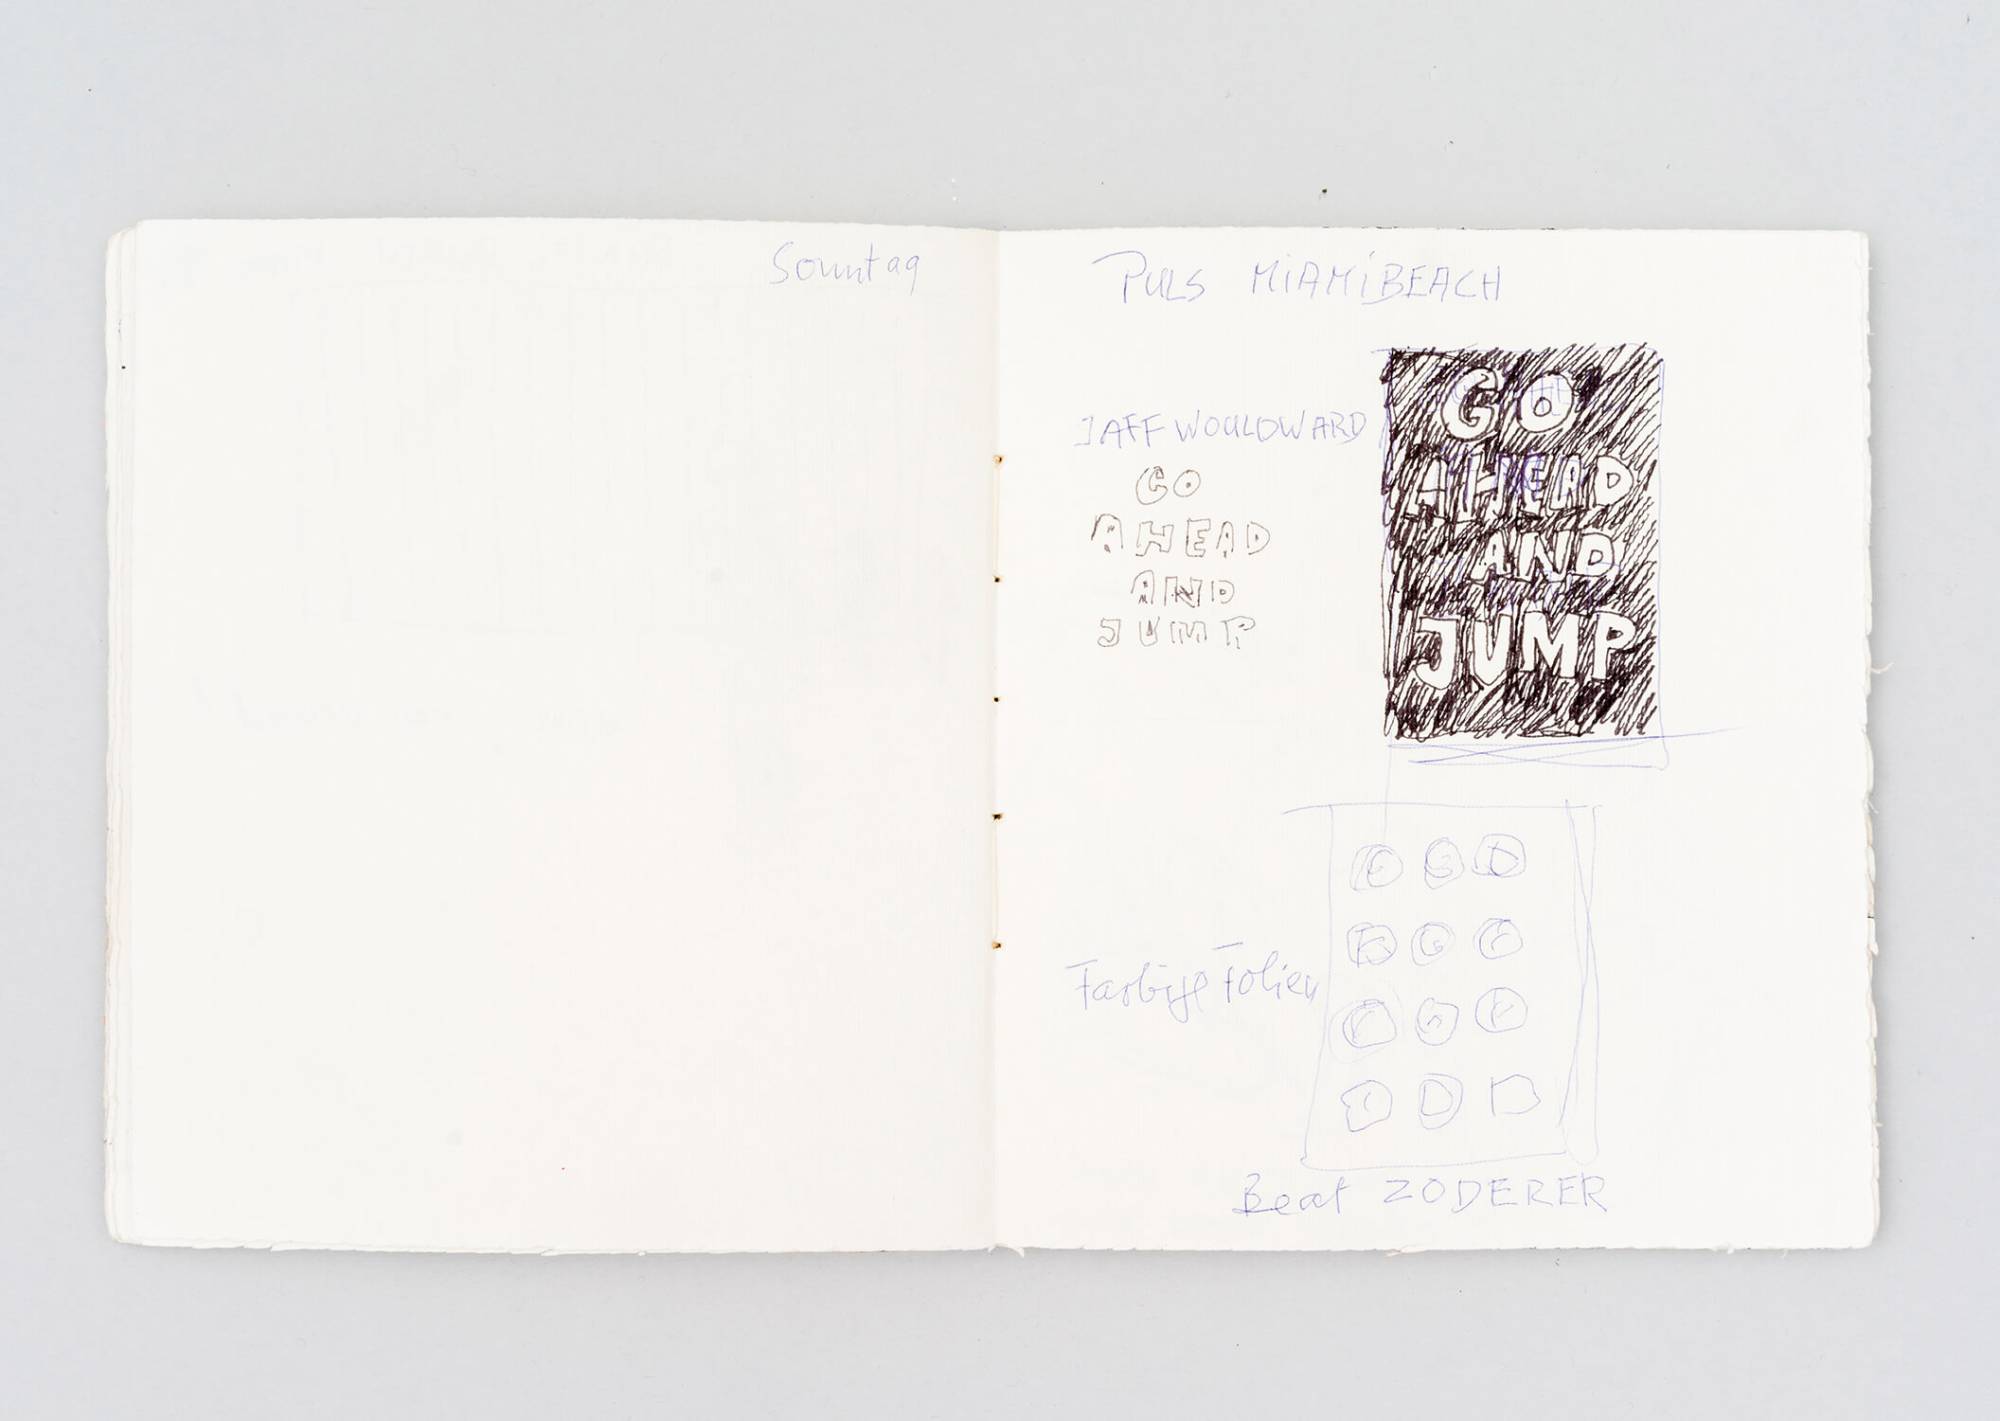 Sonntag
PULS MiAMiBEACH
JAFF WOULDWARD
GO
AHEAD
AND
JUMP
GO
AHEAD
AND
JUMP
Farbige Folien
Beat ZODERER